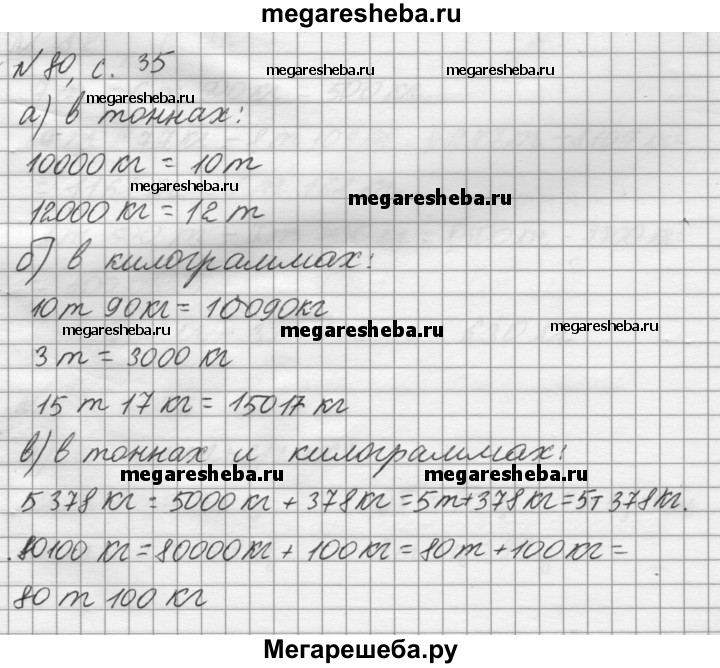 megaresheba.ru
№ 80, с. 35
megaresheba.ru megaresheba.ru
megaresheba.ru
а) в тоннах:
10000 кг = 10 т
megaresheba.ru
megaresheba.ru
12000 кг = 12 т
б) в килограммах:
10 т 90 кг = 10090 кг
megaresheba.ru megaresheba.ru megaresheba.ru
3 т = 3000 кг
15 т 17 кг = 15017 кг
в) в тоннах и килограммах:
megaresheba.ru megaresheba.ru
5 378 кг = 5000 кг + 378 кг = 5 т + 378 кг = 5 т 378 кг.
80100 кг = 80000 кг + 100 кг = 80 т + 100 кг =
80 т 100 кг
Мегарешеба.ру